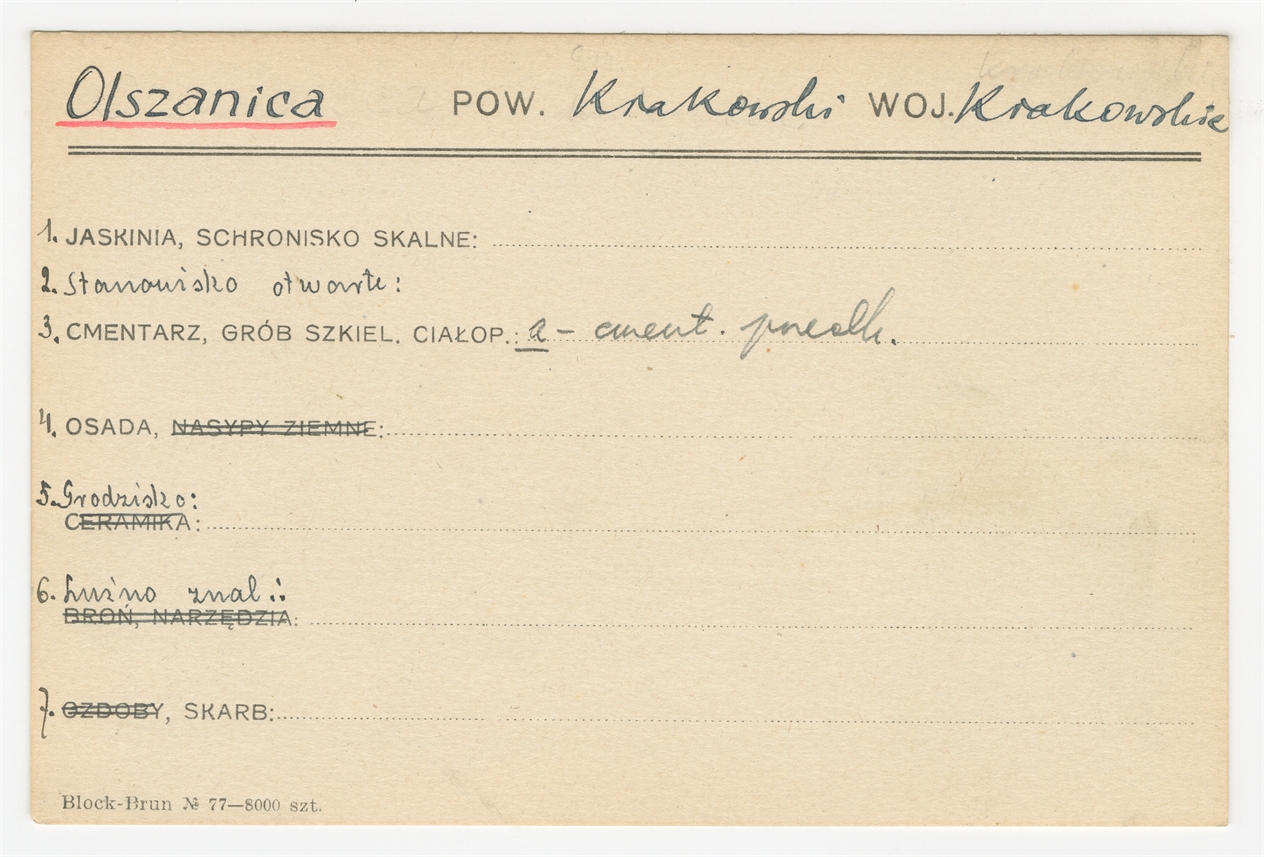 Olszanica POW. Krakowski WOJ. Krakowskie
1. JASKINIA, SCHRONISKO SKALNE:
2. Stanowisko otwarte:
3. CMENTARZ, GRÓB SZKIEL. CIAŁOP.: a – cment.
4. OSADA, NASYPY ZIEMNE:
5. Grodzisko:
CERAMIKA:
6. Luźno znal.:
BROŃ, NARZĘDZIA:
7. OZDOBY, SKARB:
Block-Brun № 77—8000 szt.